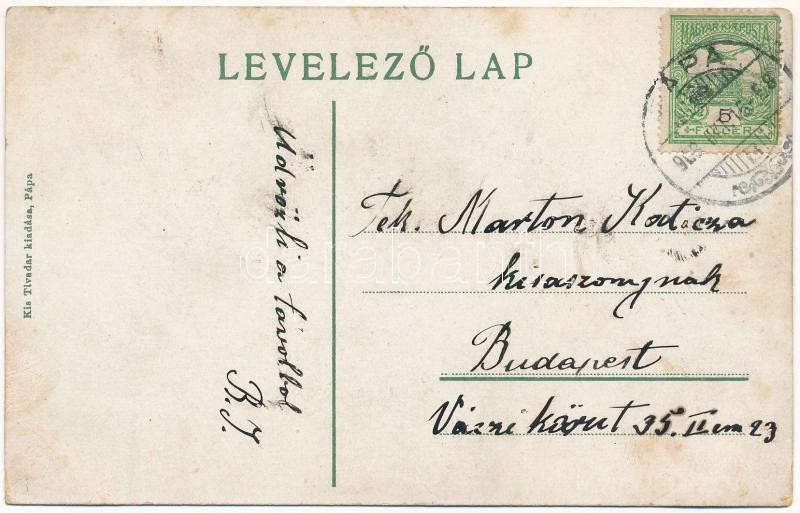 LEVELEZŐ LAP
MAGYAR KIR. POSTA
5
FILLÉR
PÁPA
Kis Tivadar kiadása, Pápa
Üdvözli a távolból
B. J.
Tek. Marton Katicza
kisaszonynak
Budapest
Váczi körut 35. II em 23
darabanth